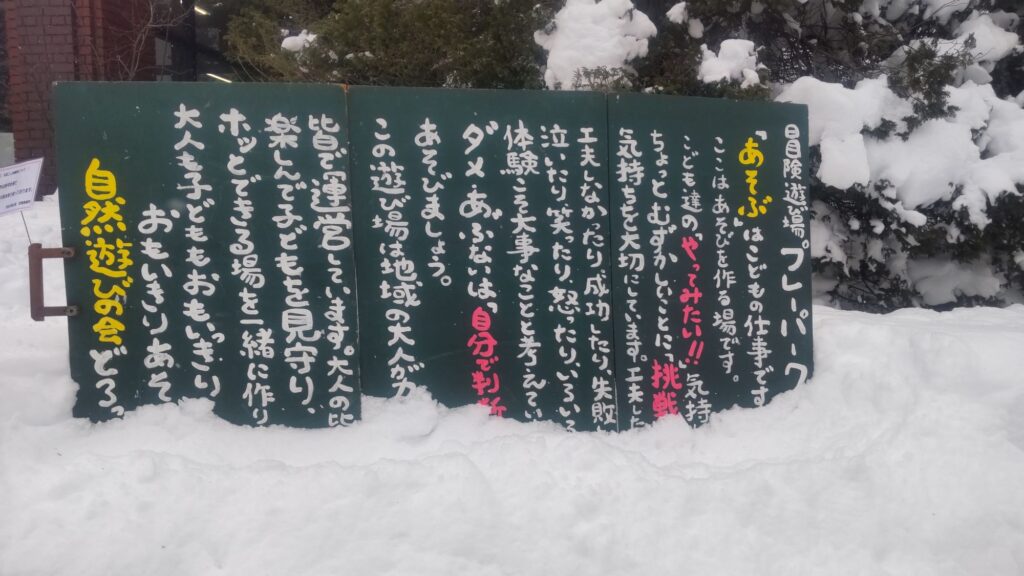 冒険遊び場プレーパーク
「あそぶ」はこどもの仕事です
ここはあそびを作る場です。
こども達の「やってみたい!!」気持
ちょっとむずかしいことに「挑戦
気持ちを大切にしています。工夫した
工夫しなかったり、成功したり、失敗
泣いたり、笑ったり、怒ったり、いろいろ
体験こそ大事なことと考えてい
ダメあぶないは「自分で判断
あそびましょう。
この遊び場は地域の大人が
皆で運営しています。大人の
楽しんで子どもを見守り、
ホッとできる場を一緒に作り
大人も子どももおもいっきり
おもいきりあそ
自然遊びの会どろ